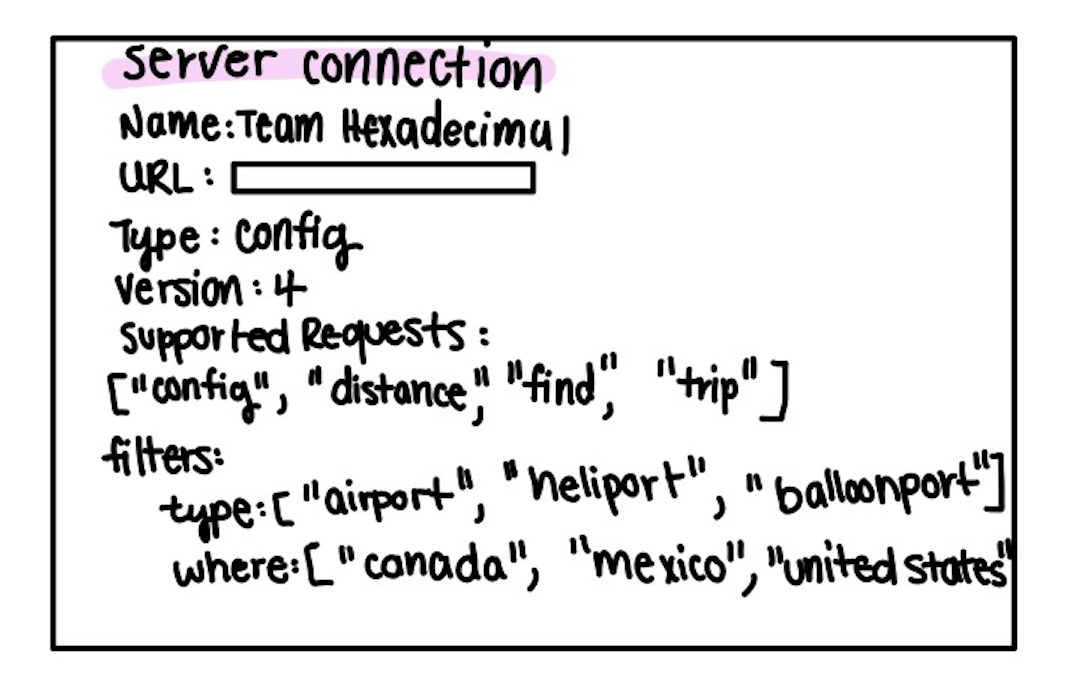 server connection
Name: Team Hexadecimal
URL:
Type: config
Version: 4
Supported Requests:
["config", "distance", "find", "trip"]
filters:
type: ["airport", "heliport", "balloonport"]
where: ["canada", "mexico", "united states"